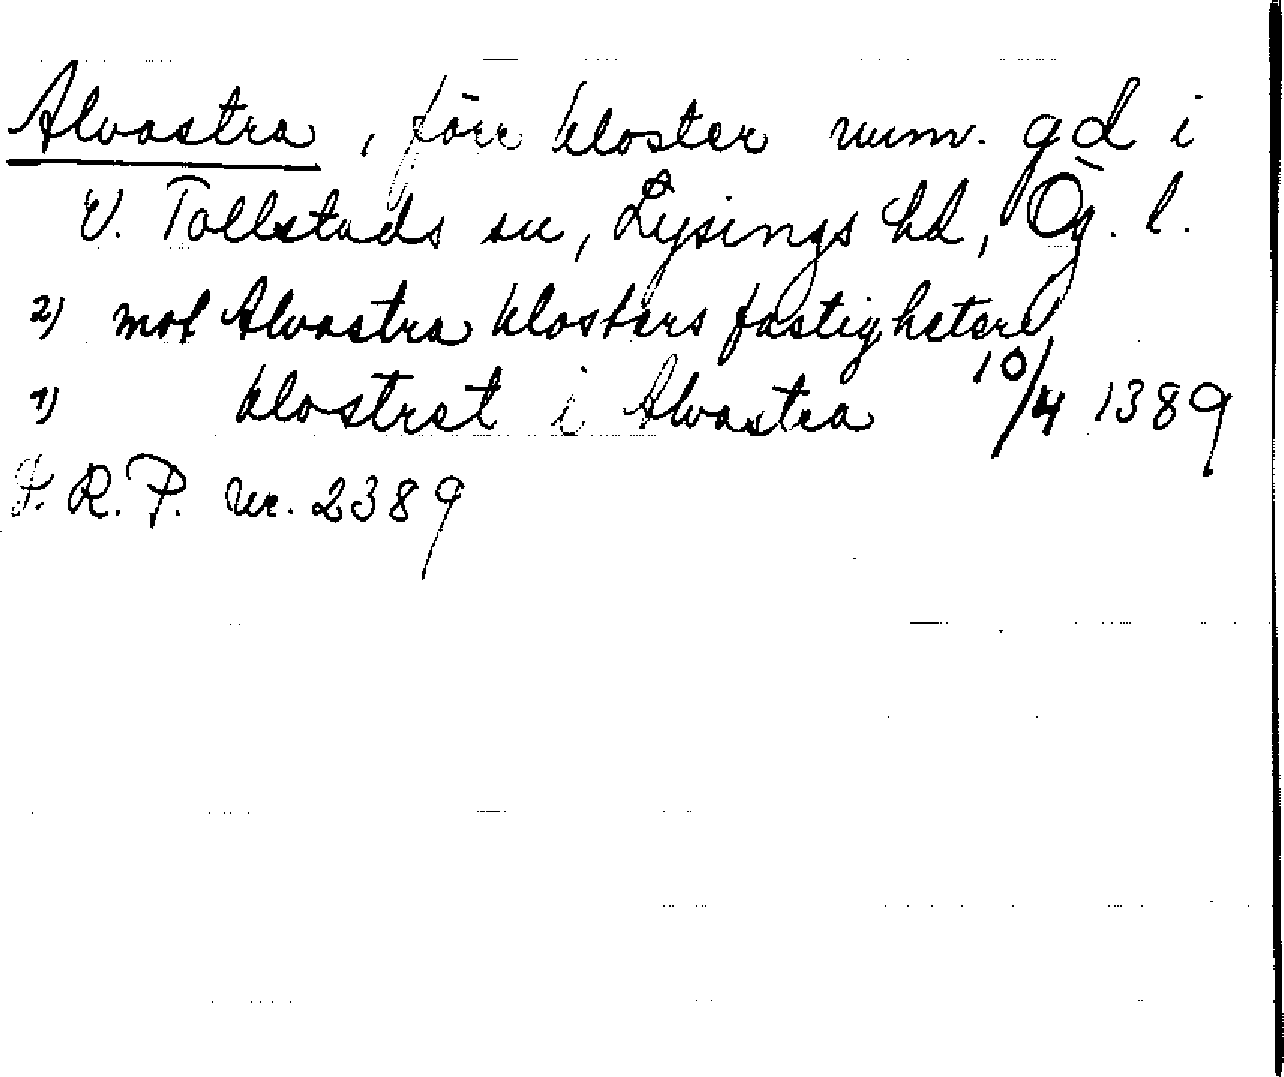 Alvastra, förr kloster num. gd i
V. Tollstads sn, Lysings hd, Ög. l.
2) mot Alvastra klosters fastigheter
1) klostret i Alvastra 10/4 1389
S. R. P. nr. 2389